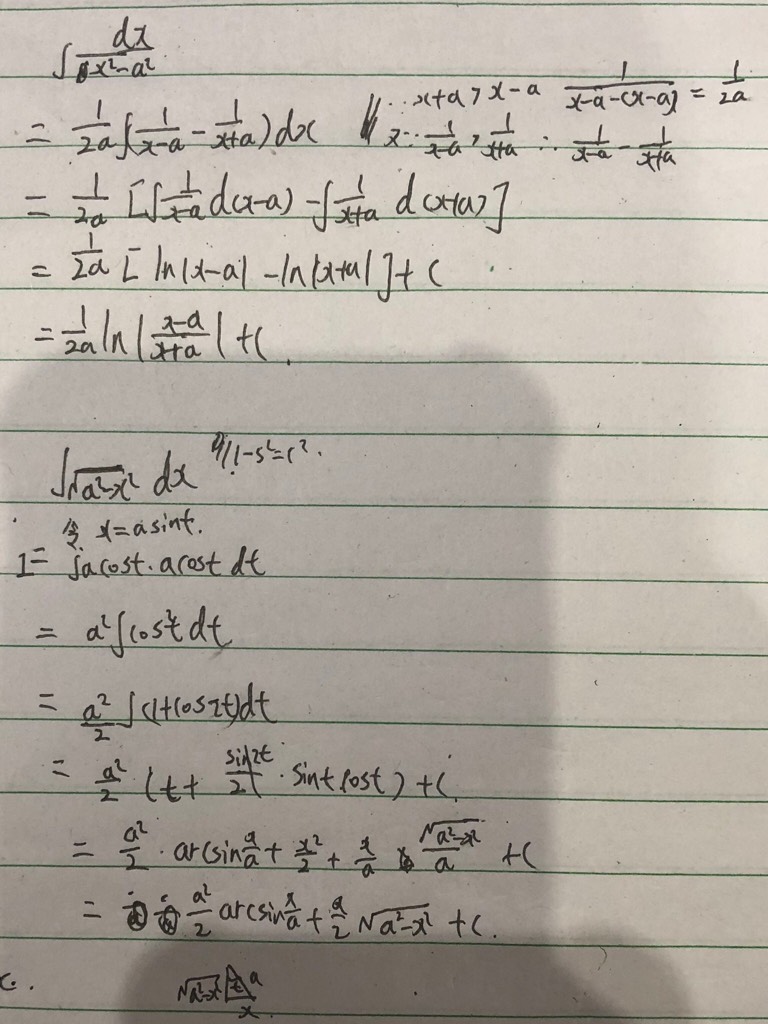 ∫ dx/(x²-a²)
= 1/2a ∫(1/(x-a) - 1/(x+a)) dx   ∵ x+a > x-a   1/(x-a-(x-a)) = 1/2a
∴ 1/(x-a) > 1/(x+a) ∴ 1/(x-a) - 1/(x+a)
= 1/2a [∫ 1/(x-a) d(x-a) - ∫ 1/(x+a) d(x+a)]
= 1/2a [ln|x-a| - ln|x+a|] + C
= 1/2a ln|(x-a)/(x+a)| + C.
∫√(a²-x²) dx   1-s²=c².
令 x = a sint.
I = ∫a cost · a cost dt
= a² ∫cos²t dt
= a²/2 ∫(1+cos2t) dt
= a²/2 (t + sin2t/2 · sint cost) + C
= a²/2 · arcsin x/a + x²/2 + x/a √(a²-x²)/a + C
= a²/2 arcsin x/a + a/2 √(a²-x²) + C.
c.   √(a²-x²) t a
x